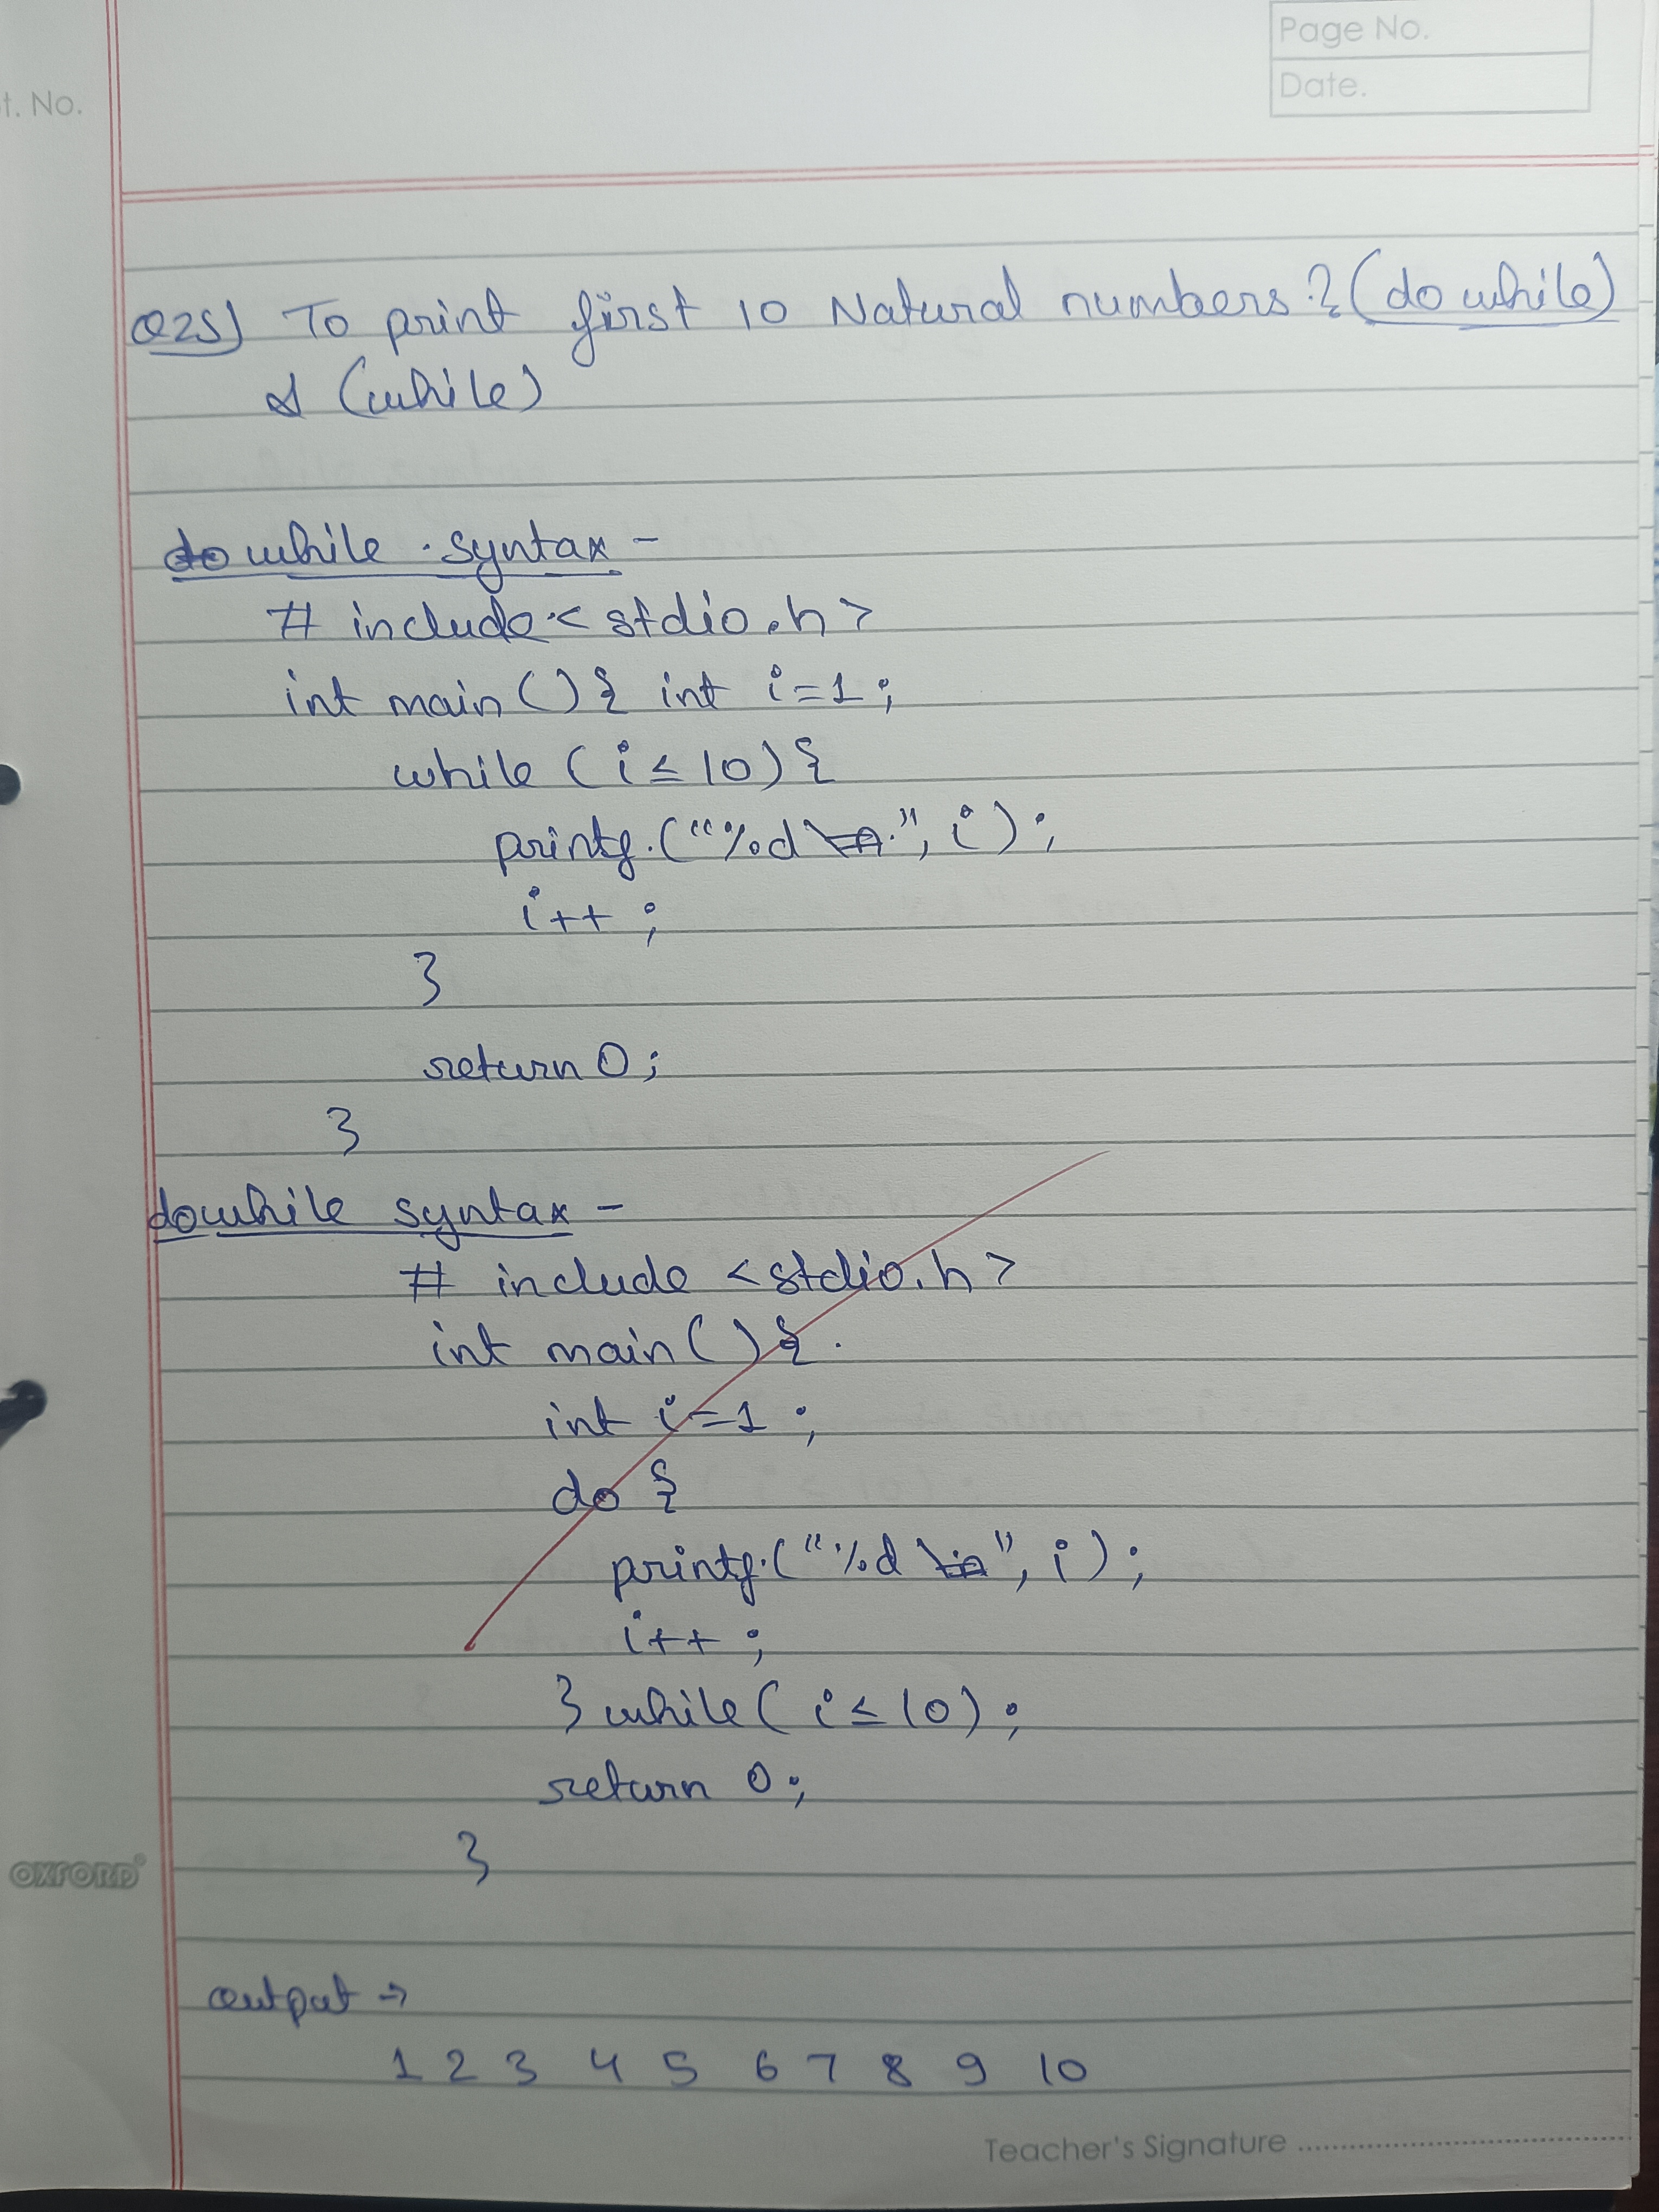 Page No.
Date.
t. No.
Q25) To print first 10 Natural numbers? (do while)
& (while)
while syntax -
# include < stdio.h >
int main () { int i=1;
while ( i ≤ 10) {
printf("%d", i);
i++ ;
}
return 0;
}
dowhile syntax -
# include <stdio.h>
int main () {
int i=1 ;
do {
printf("%d", i);
i++ ;
} while ( i ≤ 10) ;
return 0;
}
OXFORD
output →
1 2 3 4 5 6 7 8 9 10
Teacher's Signature